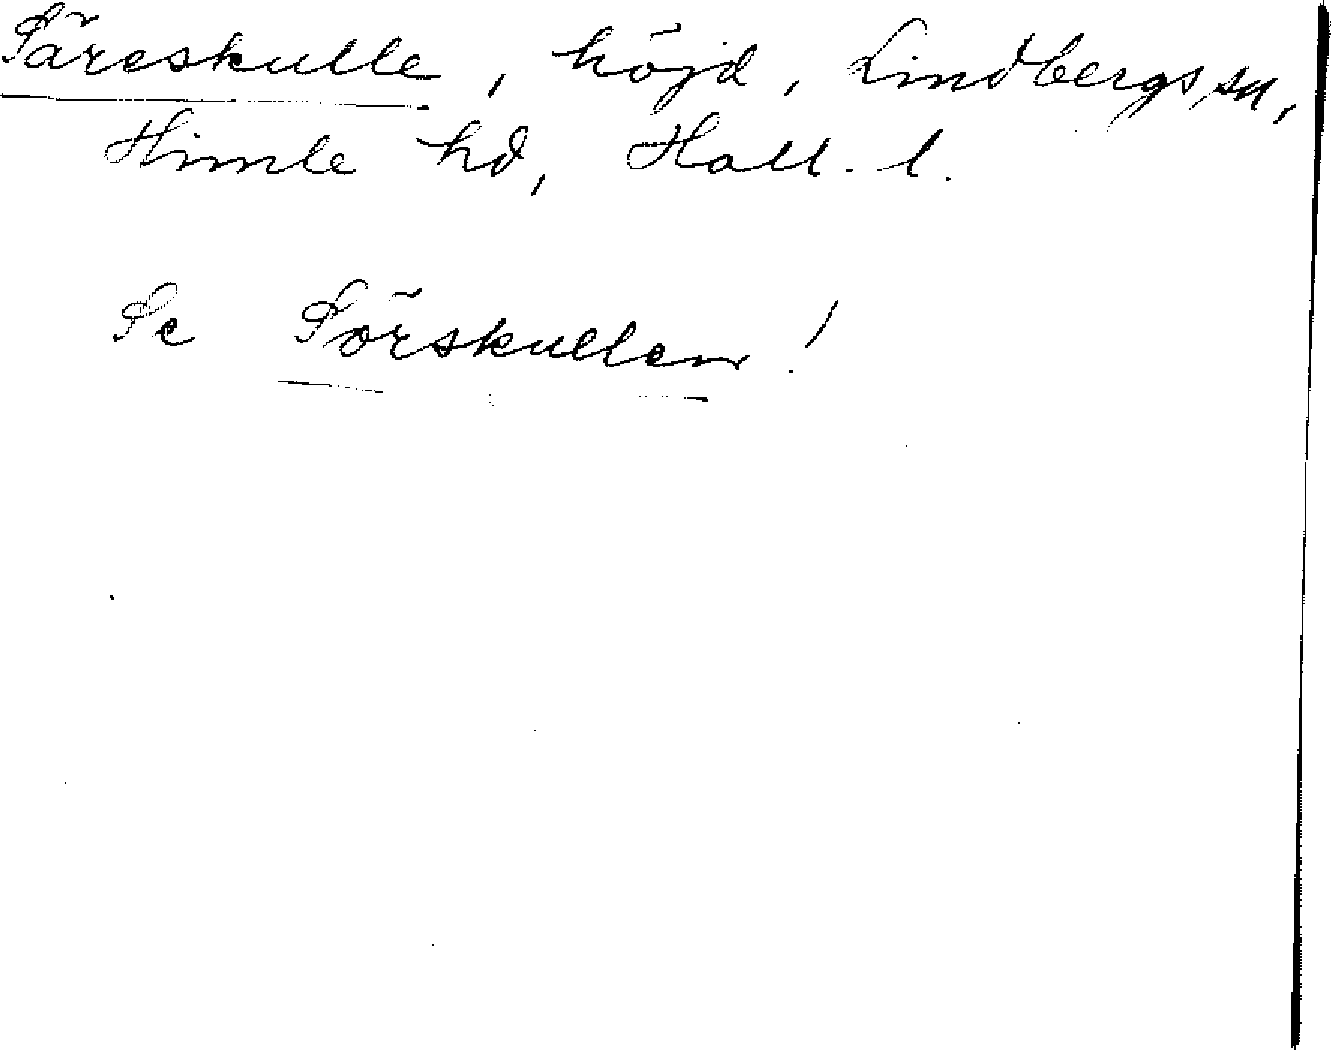 Säreskulle, höjd, Lindbergs sn,
Himle hd, Hall. l.
Se Sörskullen!